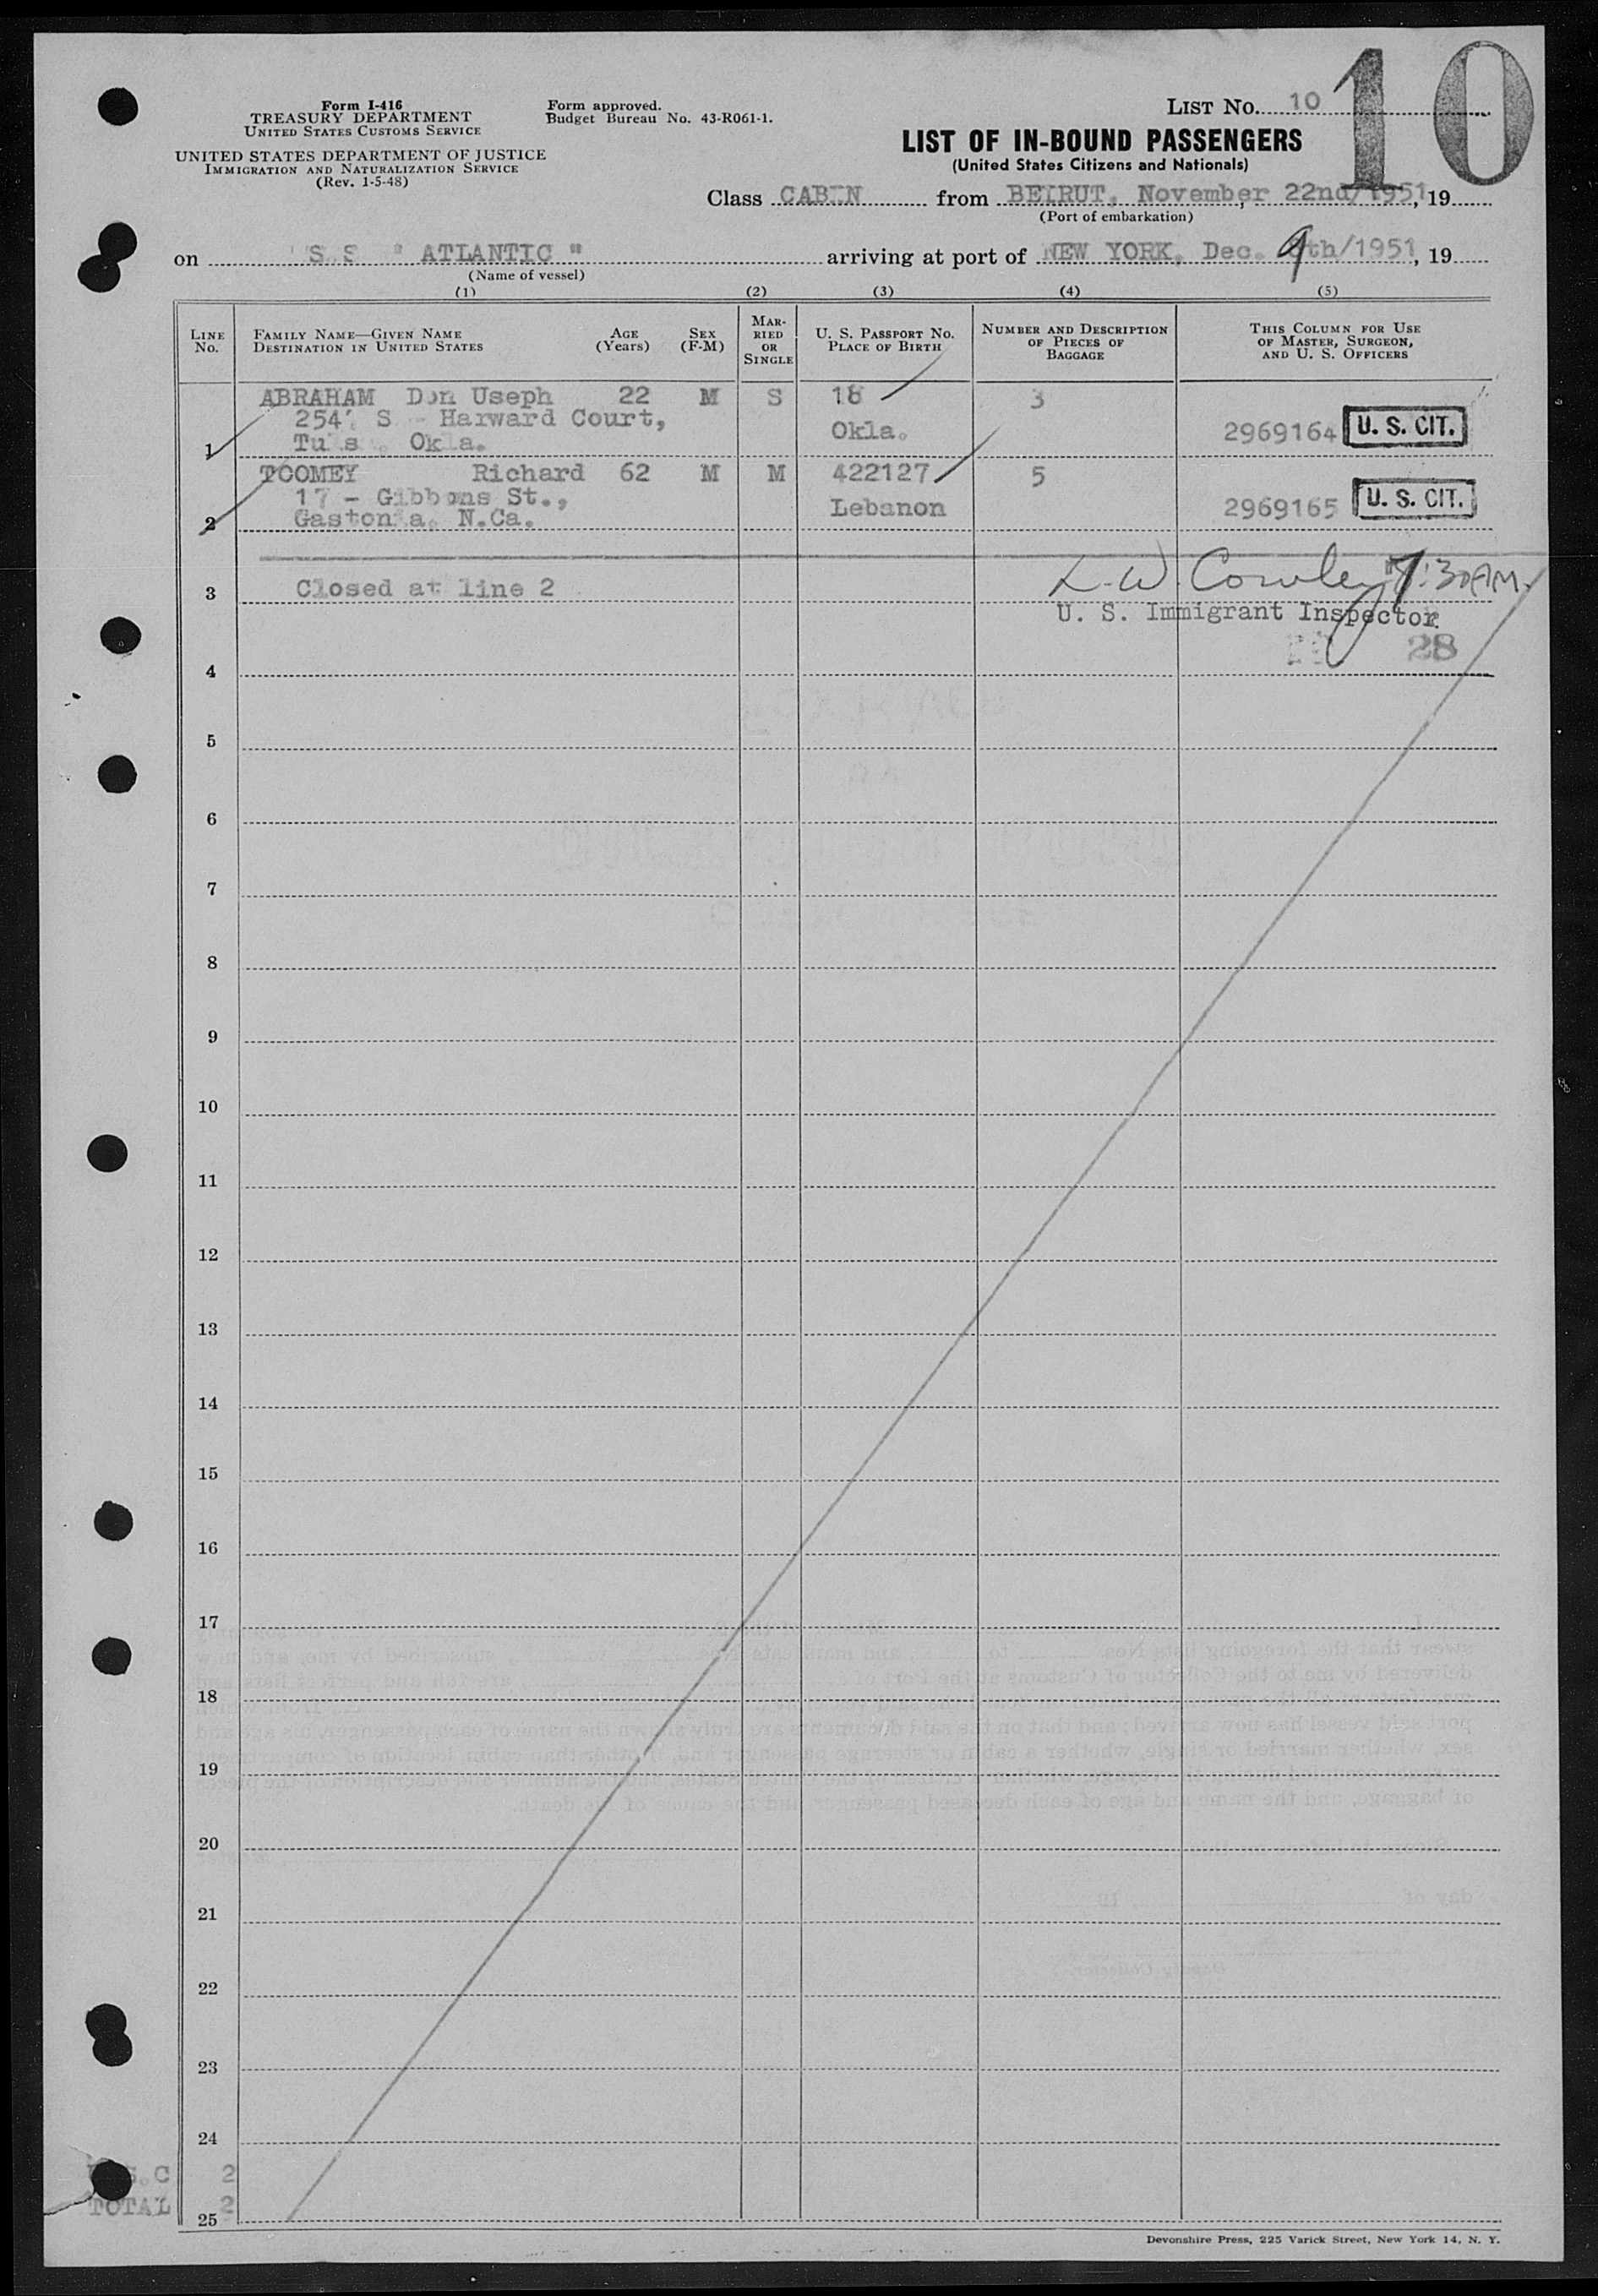 Form I-416
TREASURY DEPARTMENT
UNITED STATES CUSTOMS SERVICE
UNITED STATES DEPARTMENT OF JUSTICE
IMMIGRATION AND NATURALIZATION SERVICE
(Rev. 1-5-48)
Form approved.
Budget Bureau No. 43-R061-1.
LIST No. 10
10
LIST OF IN-BOUND PASSENGERS
(United States Citizens and Nationals)
Class CABIN from BEIRUT, November, 22nd/1951, 19
(Port of embarkation)
on S.S " ATLANTIC " arriving at port of NEW YORK. Dec. 9th/1951, 19
(Name of vessel)
(1) (2) (3) (4) (5)
LINE No.
FAMILY NAME—GIVEN NAME
DESTINATION IN UNITED STATES
AGE (Years)
SEX (F-M)
MARRIED OR SINGLE
U. S. PASSPORT NO.
PLACE OF BIRTH
NUMBER AND DESCRIPTION OF PIECES OF BAGGAGE
THIS COLUMN FOR USE OF MASTER, SURGEON, AND U. S. OFFICERS
ABRAHAM Don Useph 22 M S 18 3
S - Harward Court,
Okla. Okla. 2969164 U. S. CIT.
1
TOOMEY Richard 62 M M 422127 5
17 - Gibbons St.,
Gastonia. N.Ca. Lebanon 2969165 U. S. CIT.
2
Closed at line 2 L. W. Cowley 7:30 AM.
3
U. S. Immigrant Inspector
28
4
5
6
7
8
9
10
11
12
13
14
15
16
17
18
19
20
21
22
23
24
S.C 2
TOTAL 2
25
Devonshire Press, 225 Varick Street, New York 14, N. Y.